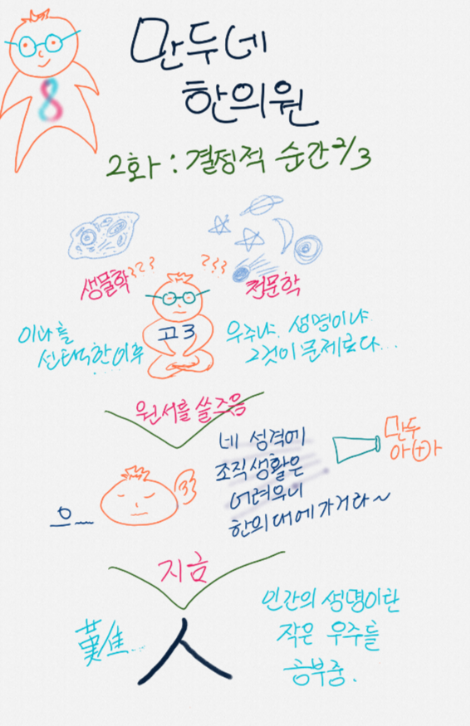 만두네
한의원
2화 : 결정적 순간 2/3
생물학???
???
천문학
고3
이과를
선택한 이후
우주냐. 생명이냐
그것이 문제로다...
원서를 쓸 즈음
네 성격에
조직생활은
어려우니
한의대에 가거라~
만두
아
으_
지금
難...
人
인간의 생명이란
작은 우주를
공부중.